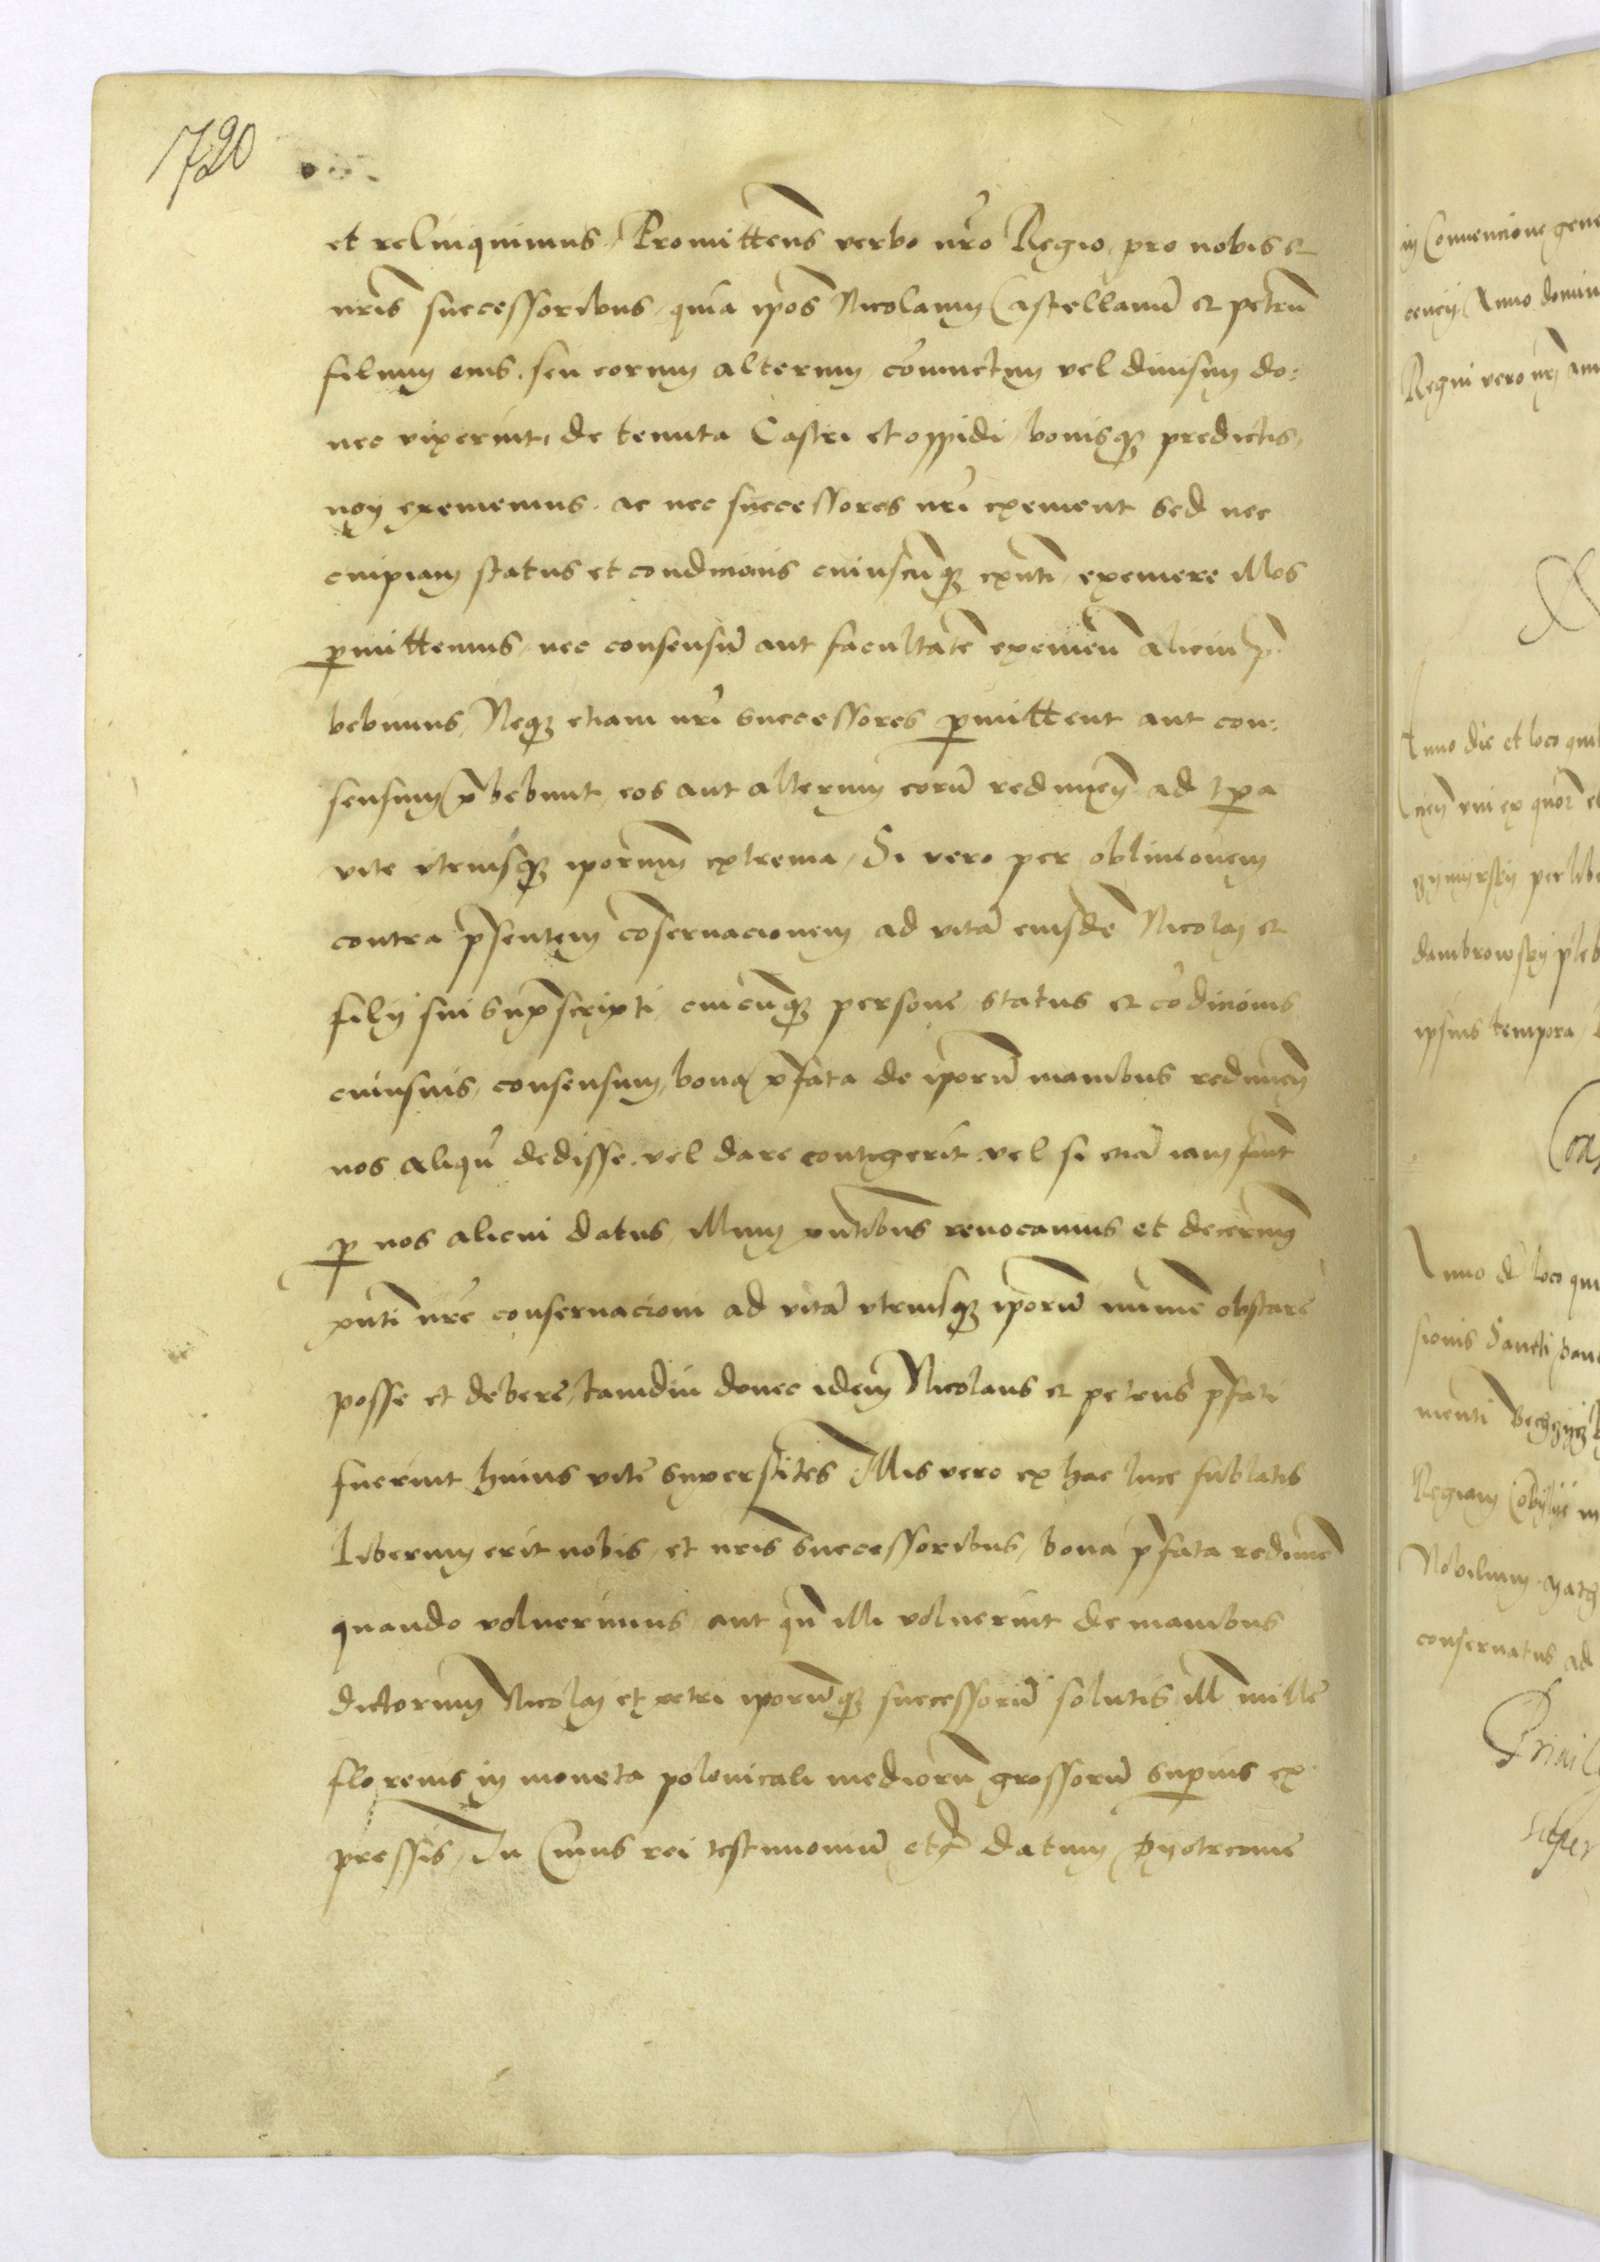 1720
et relinquimus, Promittens verbo nr̃o Regio, pro nobis et
nr̃is successoribus, quia ip̃os Nicolaum Castellanũ et petrũ
filium eius, seu eorum alterum cõiunctim vel divisim do:
nec vixerint, de tenuta Castri et oppidi, bonisqꝫ predictis,
non eximemus, ac nec successores nr̃i eximent sed nec
cuipiam status et condicionis cuiuscũqꝫ exñti, eximere illos
ꝑmittemus, nec consensũ aut facultatẽ eximeñ alicui p̃
bebimus, Neqꝫ etiam nr̃i successores ꝑmittent aut con:
sensum p̃bebunt, eos aut alterum eorũ redimeñ ad tꝑa
vite vtriusqꝫ ip̃orum extrema, Si vero per oblivionem
contra p̃sentem cõservacionem, ad vitã eiusdẽ Nicolai et
filij sui supͣscripti, cuicũqꝫ persone, status et cõdicionis
cuiusvis, consensum, bona p̃fata de ip̃orũ manibus redimeñ
nos aliqñ dedisse, vel dare contigerit, vel si eciã iam sint
ꝑ nos alicui datus, illum p̃ntibus revocamus et decernimꝰ
p̃nti nr̃e conservacioni ad vitã vtriusqꝫ ip̃orũ minime obstare
posse et debere, tamdiu donec idem Nicolaus et petrus p̃fati
fuerint huius vite superstites, Illis vero ex hac luce sublatis
liberum erit nobis, et nr̃is successoribus, bona p̃fata redimeñ
quando voluerimus, aut qñ illi voluerint de manibus
dictorum Nicolai et petri ip̃orũqꝫ successorũ solutis, ill̃ mille
florenis in moneta polonicali mediorũ grossorũ suꝑius ex
pressis, In Cuius rei testimoniũ etc̃ datum Pyotrcovie
in Convencione gene
Anno domin
Regni vero nr̃i ann
Anno die et loco qui
per lib
dambrowsky
ipsius tempora
Anno et loco qui
sionis Sancti
menti
Regiam
Nobilium
conservatus ad
super